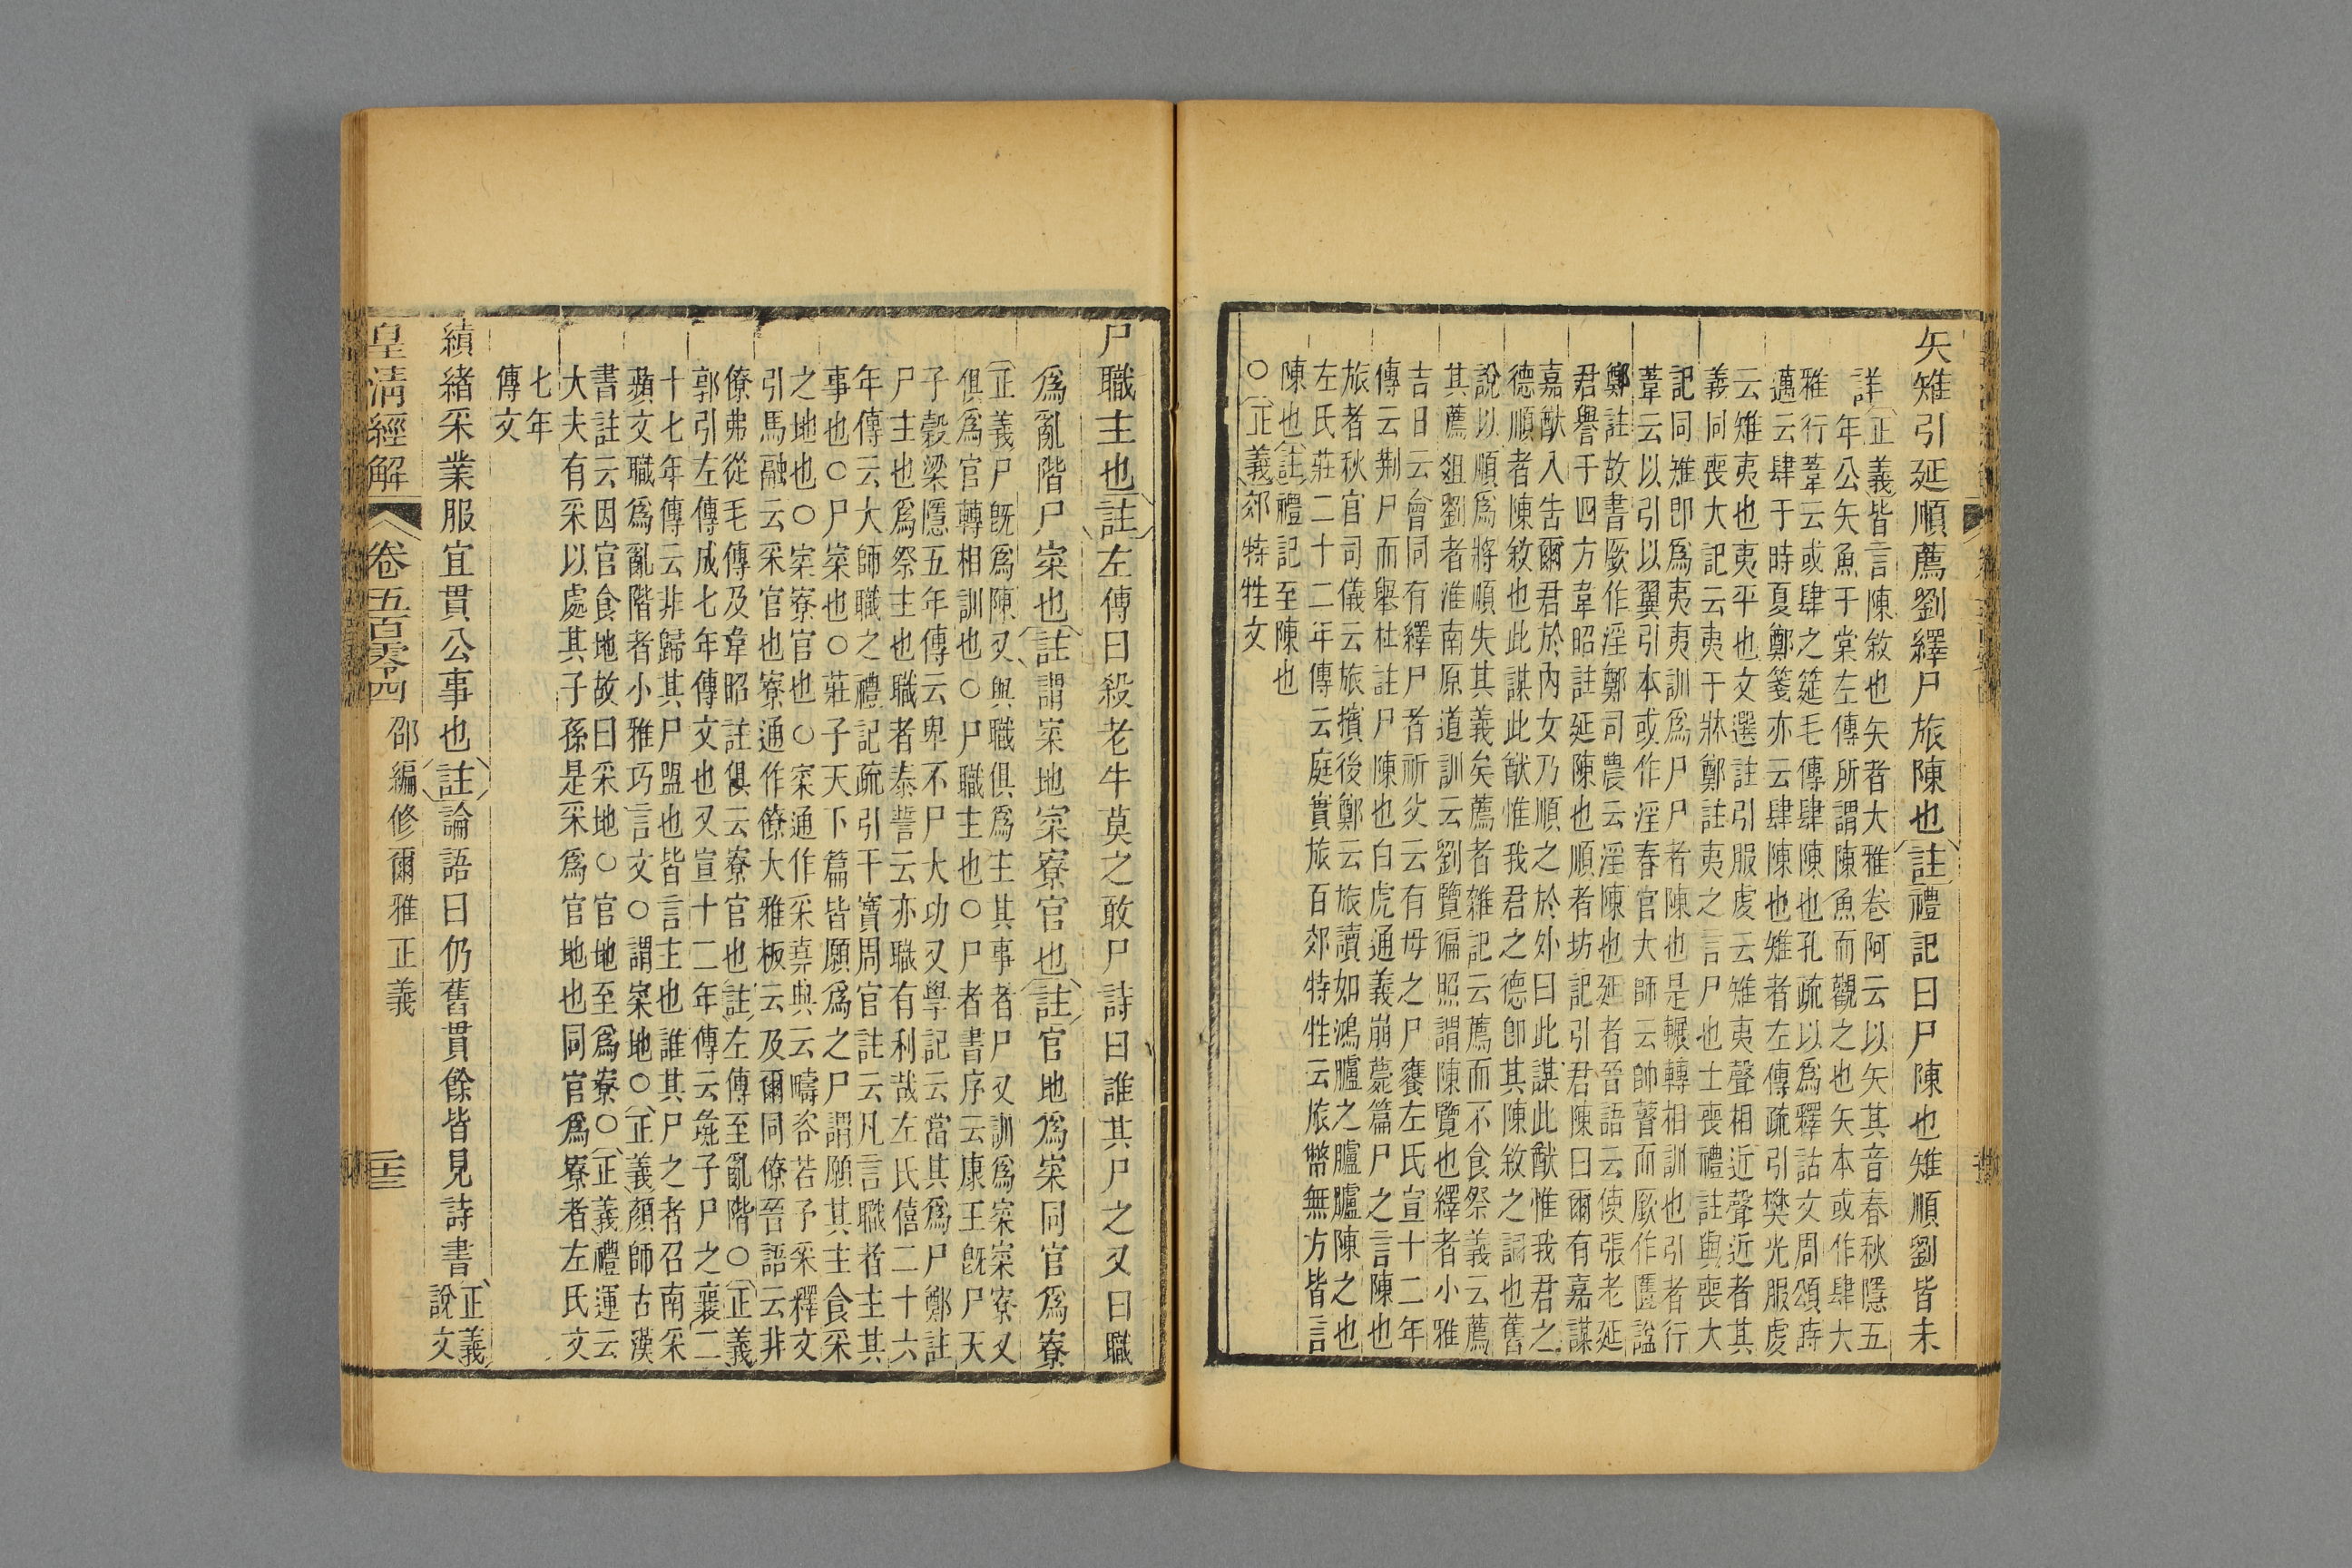 矢雉引延順薦劉繹尸旅陳也註禮記曰尸陳也雉順劉皆未
詳正義皆言陳敘也矢者大雅卷阿云以矢其音春秋隱五
年公矢魚于棠左傳所謂陳魚而觀之也矢本或作肆大
雅行葦云或肆之筵毛傳肆陳也孔疏以爲釋詁文周頌時
邁云肆于時夏鄭箋亦云肆陳也雉者左傳疏引樊光服虔
云雉夷也夷平也文選註引服虔云雉夷聲相近聲近者其
義同喪大記云夷于牀鄭註夷之言尸也士喪禮註與喪大
記同雉卽爲夷夷訓爲尸尸者陳也是輾轉相訓也引者行
葦云以引以翼引本或作淫春官大師云帥瞽而廞作匶諡
鄭註故書廞作淫鄭司農云淫陳也延者晉語云使張老延
君譽于四方韋昭註延陳也順者坊記引君陳曰爾有嘉謀
嘉猷入告爾君於內女乃順之於外曰此謀此猷惟我君之
德順者陳敘也此謀此猷惟我君之德卽其陳敘之詞也舊
說以順爲將順失其義矣薦者雜記云薦而不食祭義云薦
其薦俎劉者淮南原道訓云劉覽徧照謂陳覽也繹者小雅
吉日云會同有繹尸者祈父云有母之尸饔左氏宣十二年
傳云荆尸而舉杜註尸陳也白虎通義崩薨篇尸之言陳也
旅者秋官司儀云旅擯後鄭云旅讀如鴻臚之臚臚陳之也
左氏莊二十二年傳云庭實旅百郊特牲云旅幣無方皆言
陳也註禮記至陳也
○正義郊特牲文
尸職主也註左傳曰殺老牛莫之敢尸詩曰誰其尸之又曰職
爲亂階尸寀也註謂寀地寀寮官也註官地爲寀同官爲寮
正義尸旣爲陳又與職俱爲主其事者尸又訓爲寀寀寮又
俱爲官轉相訓也○尸職主也○尸者書序云康王旣尸天
子穀梁隱五年傳云卑不尸大功又學記云當其爲尸鄭註
尸主也爲祭主也職者泰誓云亦職有利哉左氏僖二十六
年傳云大師職之禮記疏引干寶周官註云凡言職者主其
事也○尸寀也○莊子天下篇皆願爲之尸謂願其主食采
之地也○寀寮官也○寀通作采堯典云疇咨若予采釋文
引馬融云采官也寮通作僚大雅板云及爾同僚晉語云非
僚弗從毛傳及韋昭註俱云寮官也註左傳至亂階○正義
郭引左傳成七年傳文也又宣十二年傳云彘子尸之襄二
十七年傳云非歸其尸盟也皆言主也誰其尸之者召南采
蘋文職爲亂階者小雅巧言文○謂寀地○正義顏師古漢
書註云因官食地故曰采地○官地至爲寮○正義禮運云
大夫有采以處其子孫是采爲官地也同官爲寮者左氏文
七年
傳文
績緒采業服宜貫公事也註論語曰仍舊貫餘皆見詩書正義
說文
皇清經解 卷五百零四 邵編修爾雅正義 二十三